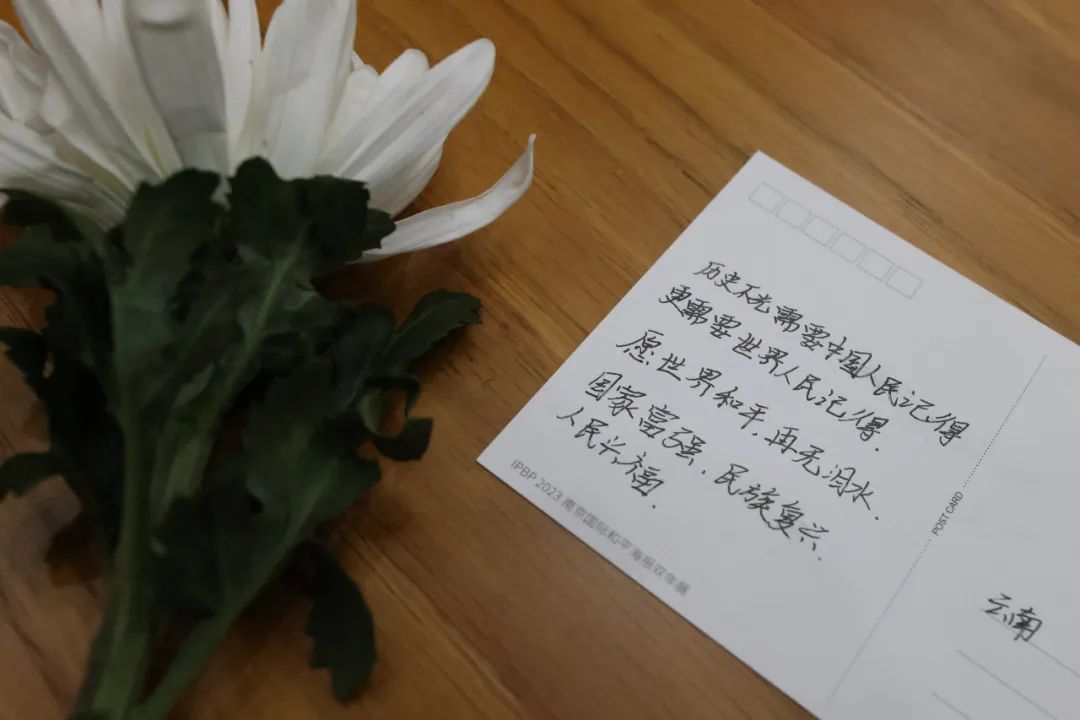 历史不光需要中国人民记得
更需要世界人民记得.
愿世界和平,再无泪水.
国家富强,民族复兴.
人民兴福.
IPBP 2023 南京国际和平海报双年展
POST CARD
云南